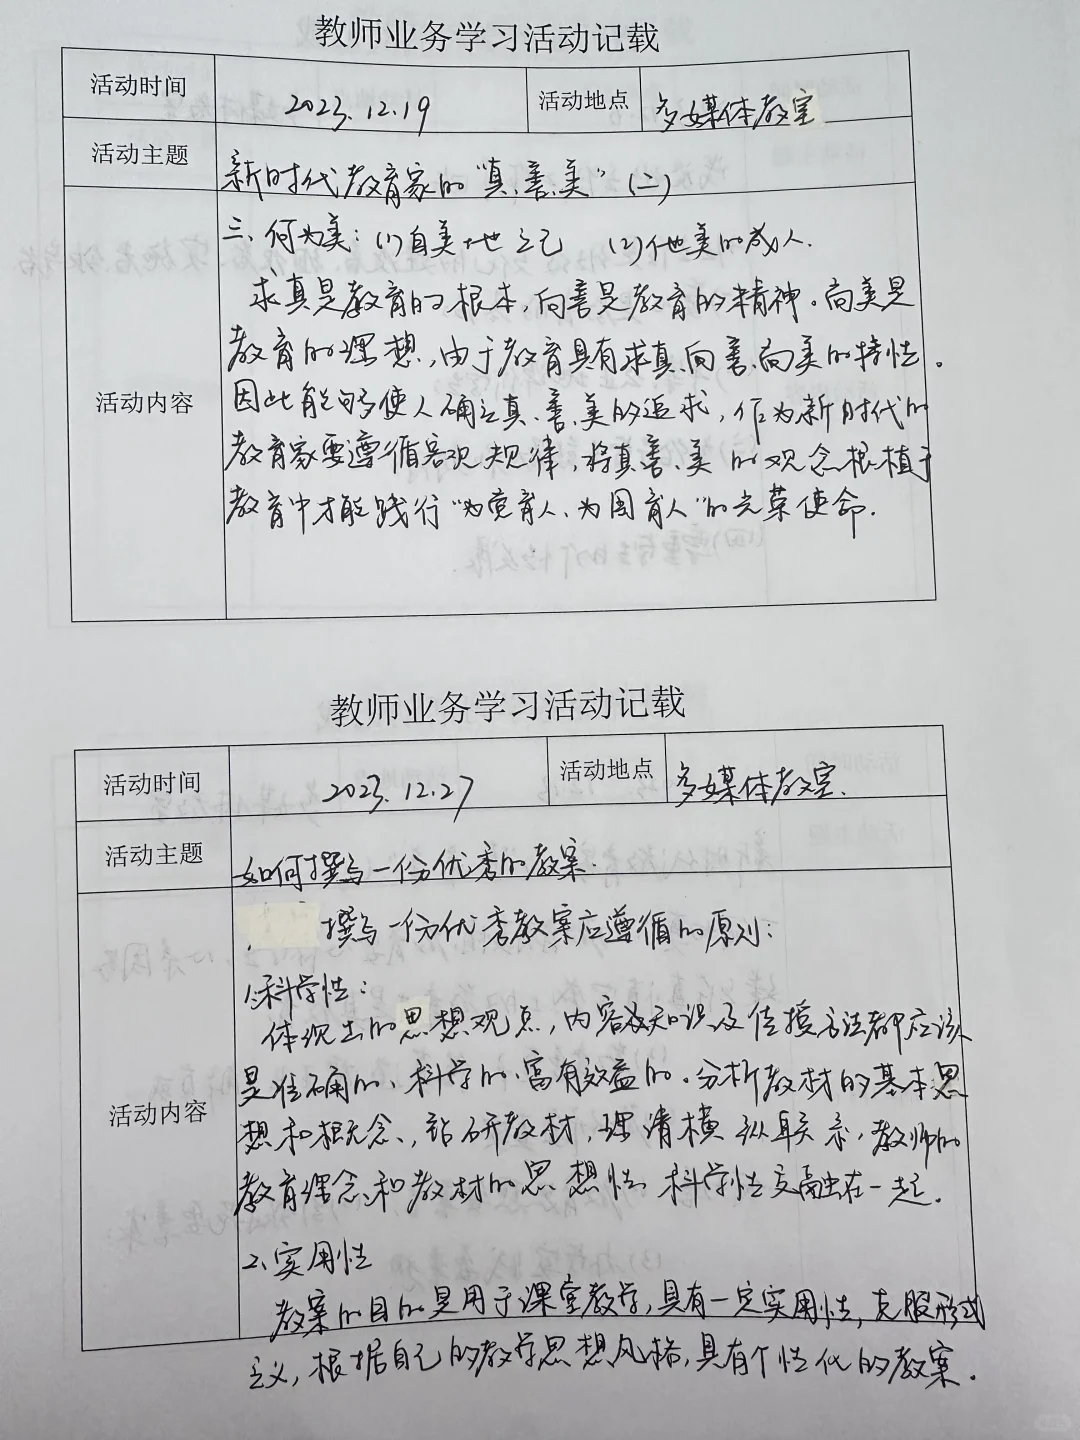 教师业务学习活动记载
活动时间 2023.12.19 活动地点 多媒体教室
活动主题 新时代教育家的“真、善、美”(二)
三、何为美:(1)自美地立己 (2)他美的成人.
求真是教育的根本,向善是教育的精神。向美是
教育的理想,由于教育具有求真、向善、向美的特性。
活动内容 因此能够使人确立真、善、美的追求,作为新时代的
教育家要遵循客观规律,将真、善、美的观念根植于
教育中才能践行“为党育人、为国育人”的光荣使命.
教师业务学习活动记载
活动时间 2023.12.27 活动地点 多媒体教室.
活动主题 如何撰写一份优秀的教案.
撰写一份优秀教案应遵循的原则:
1.科学性:
体现出的思想观点,内容及知识及传授方法都应该
是准确的、科学的、富有效益的。分析教材的基本思
活动内容 想和概念、,钻研教材,理清横纵联系,教师的
教育理念和教材的思想性、科学性交融在一起.
2、实用性
教案的目的是用于课堂教学,具有一定实用性,克服形式
主义,根据自己的教学思想风格,具有个性化的教案.